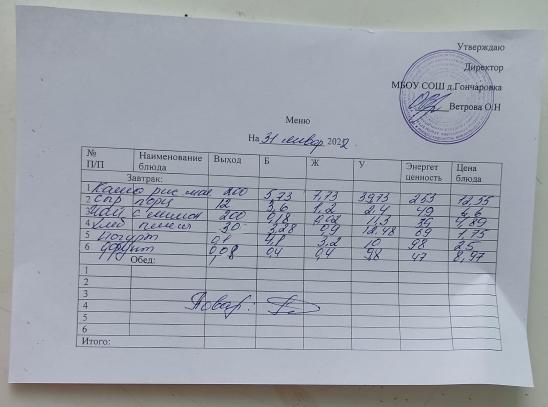 Утверждаю
Директор
МБОУ СОШ д.Гончаровка
Ветрова О.Н
Меню
На 31 январ 2022
№ П/П Наименование блюда Выход Б Ж У Энергет ценность Цена блюда
Завтрак:
1 Каша рис мол 200 5,73 7,73 253 12,35
2 Сыр порц 12 3,6 2,4 49 6,6
Чай с лимон 200 0,18 0,02 4,89
4 Хлеб 30 3,28 0,4 12,48 69 1,75
5 Йогурт 3,2 10 98 25
6 фрукт 0,08 0,4 0,4 9,8 47 8,97
Обед:
1
2
3
4 Повар:
5
6
Итого: